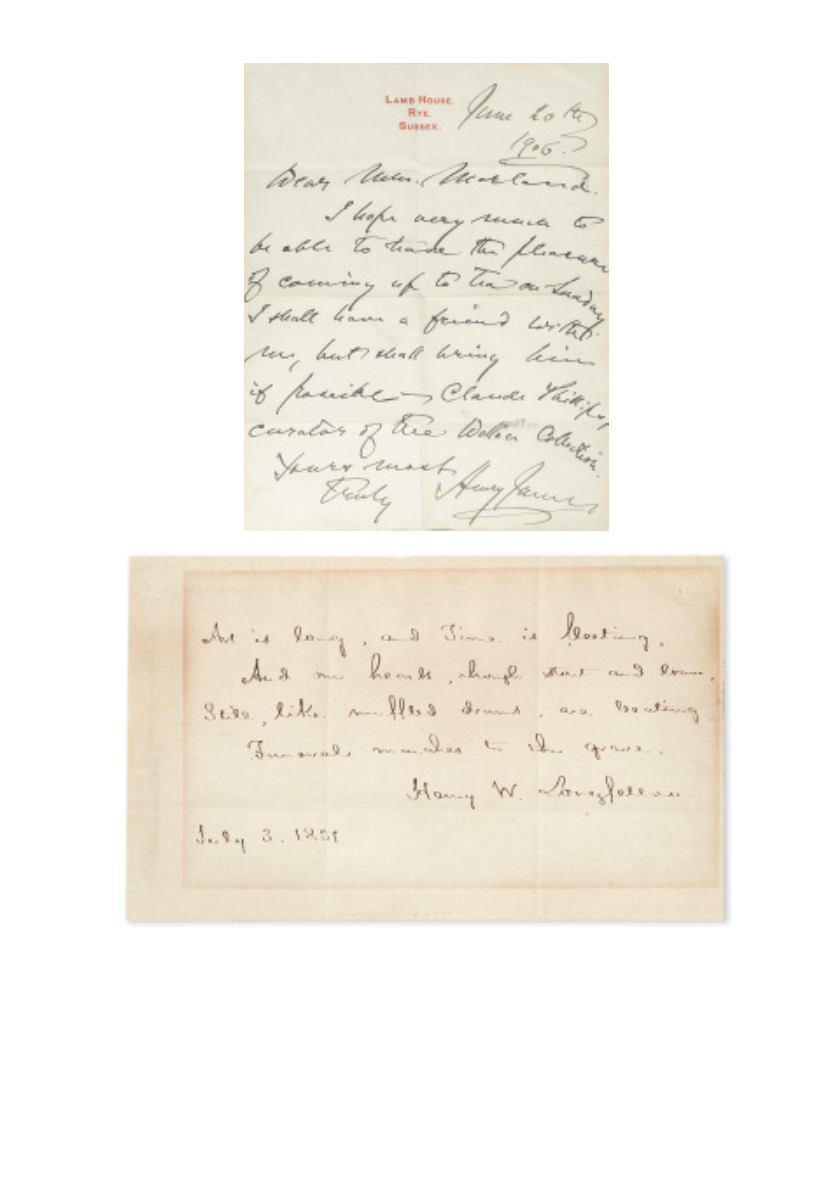 LAMB HOUSE,
RYE,
SUSSEX.
June 20th
1906.
Dear Mrs.
I hope very much to
be able to have the pleasure
of coming up to tea on Sunday.
I shall have a friend with
me, but I shall bring him
if possible — Claude Phillips,
curator of the Wallace Collection.
Yours most
truly Henry James
Art is long, and Time is fleeting,
And our hearts, though stout and brave,
Still, like muffled drums, are beating
Funeral marches to the grave.
Henry W. Longfellow
July 3.